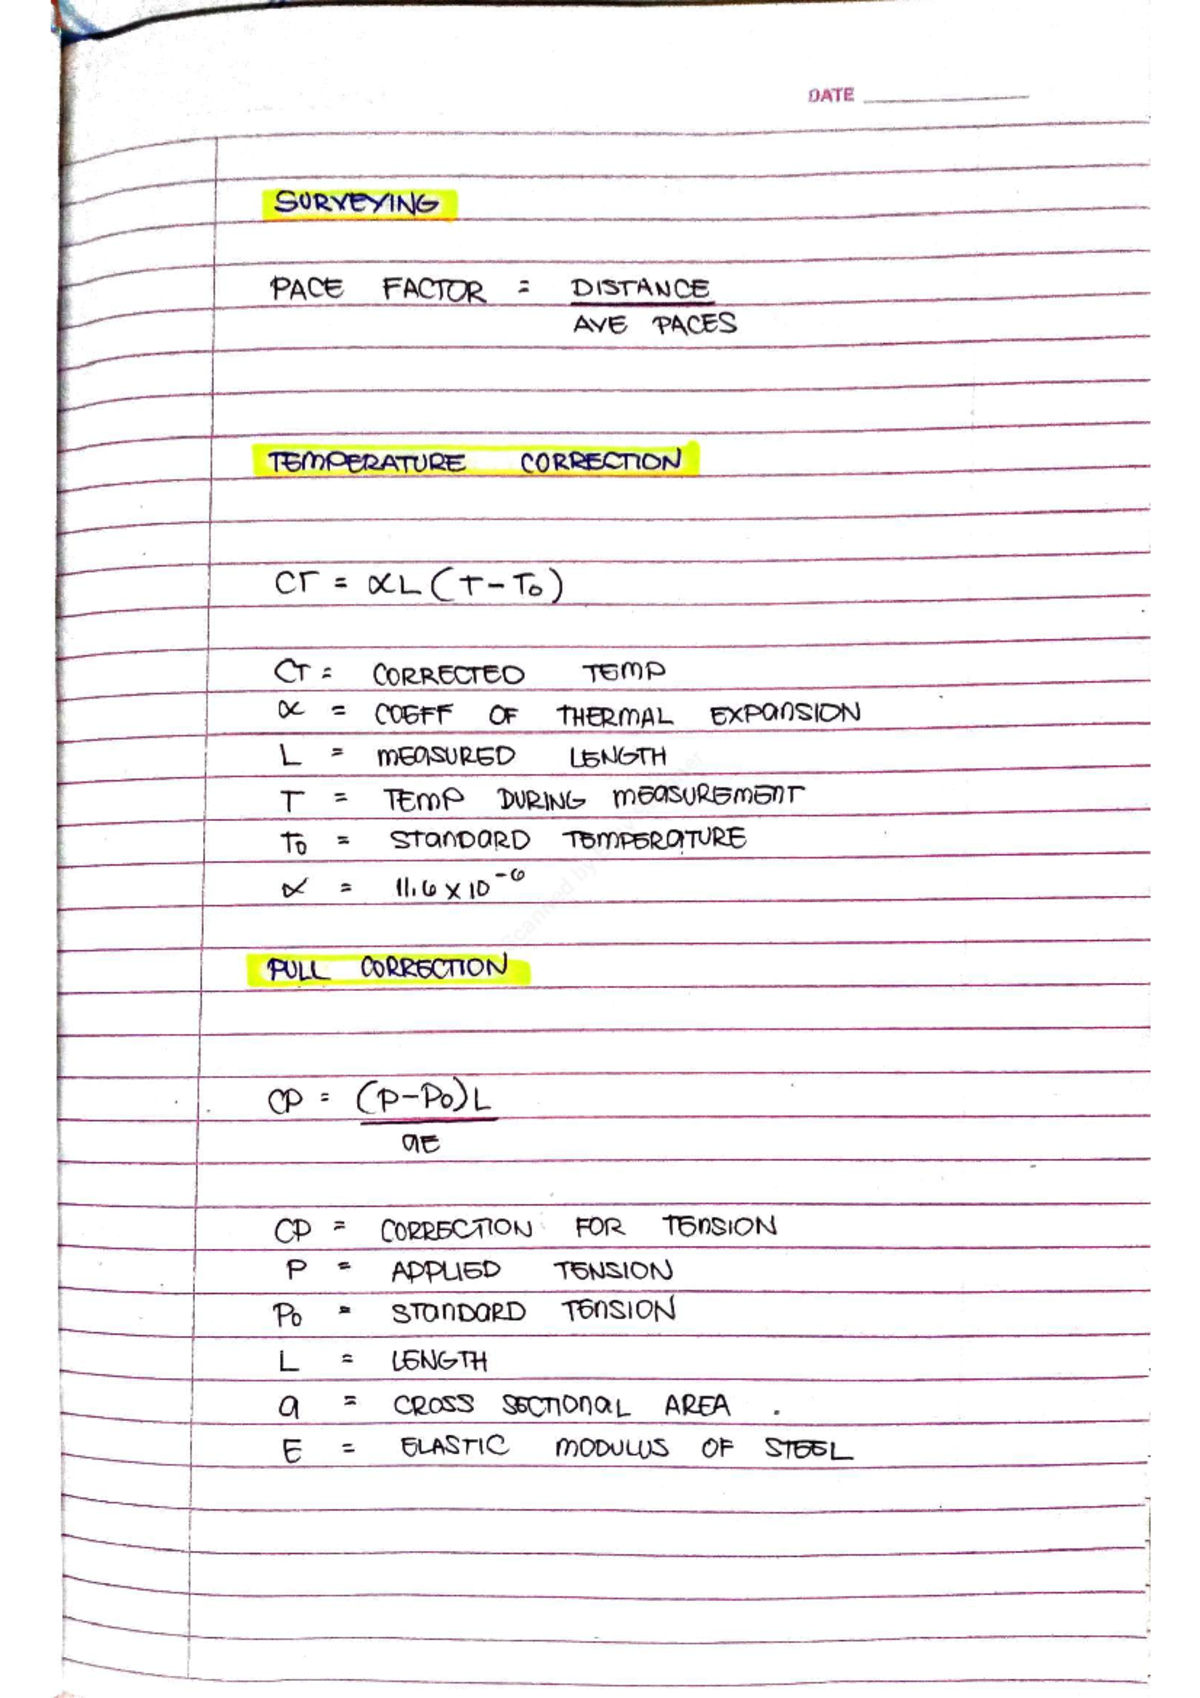 DATE
SURVEYING
PACE FACTOR = DISTANCE
AVE PACES
TEMPERATURE CORRECTION
CT = αL (T - To)
CT = CORRECTED TEMP
α = COEFF OF THERMAL EXPANSION
L = MEASURED LENGTH
T = TEMP DURING MEASUREMENT
To = STANDARD TEMPERATURE
α = 11.6 x 10⁻⁶
PULL CORRECTION
CP = (P-Po)L
aE
CP = CORRECTION FOR TENSION
P = APPLIED TENSION
Po = STANDARD TENSION
L = LENGTH
a = CROSS SECTIONAL AREA .
E = ELASTIC MODULUS OF STEEL
Scanned by